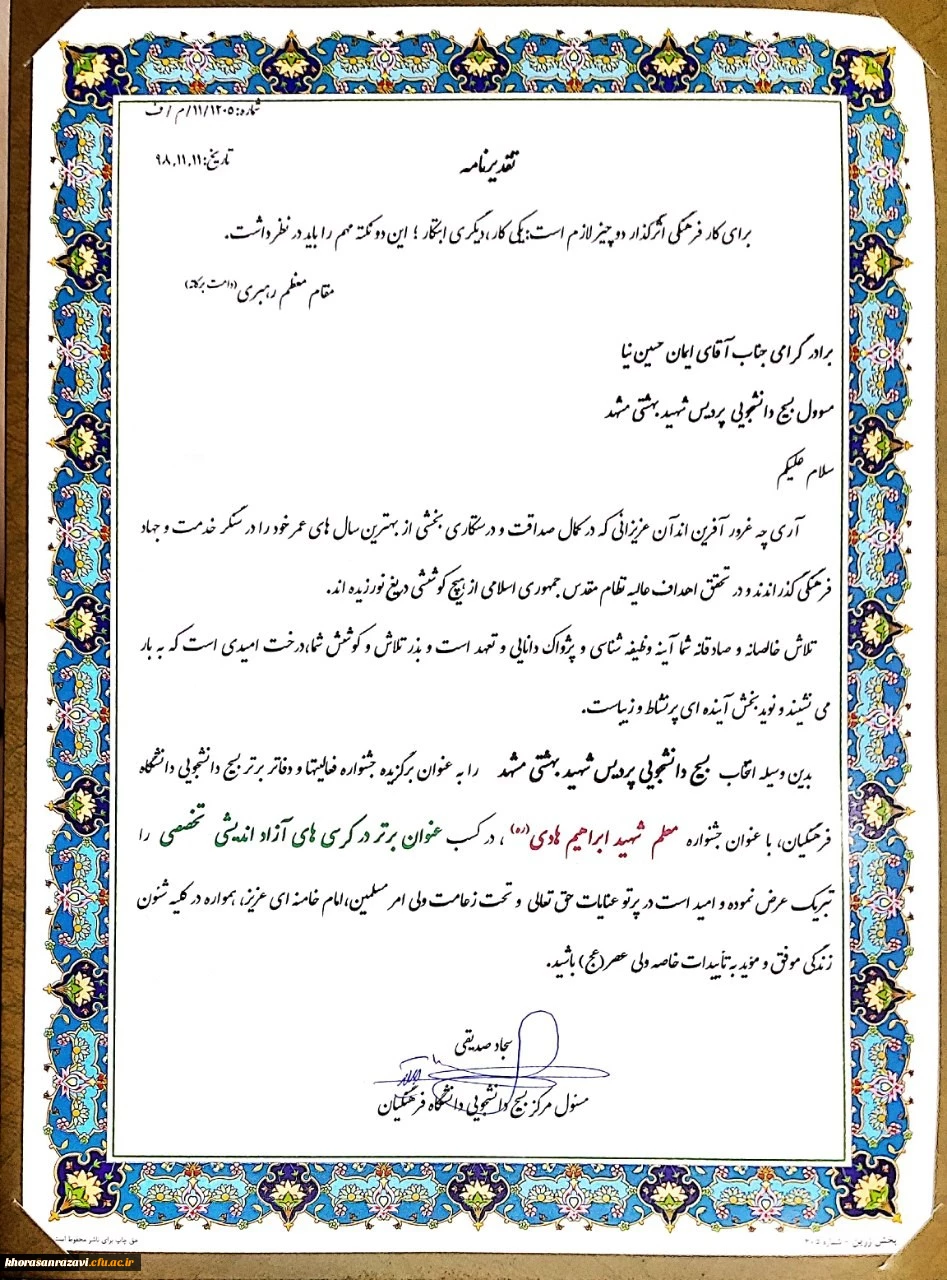 شماره: ۱۱/۱۲۰۵/م/ف
تاریخ: ۹۸.۱۱.۱۱
تقدیرنامه
برای کار فرهنگی اثرگذار دو چیز لازم است: یکی کار، دیگری ابتکار؛ این دو نکته مهم را باید در نظر داشت.
مقام معظم رهبری (دامت برکاته)
برادر گرامی جناب آقای ایمان حسین نیا
مسوول بسیج دانشجویی پردیس شهید بهشتی مشهد
سلام علیکم
آری چه غرور آفرین اند آن عزیزانی که در کمال صداقت و درستکاری بخشی از بهترین سال های عمر خود را در سنگر خدمت و جهاد
فرهنگی گذراندند و در تحقق اهداف عالیه نظام مقدس جمهوری اسلامی از هیچ کوششی دریغ نورزیده اند.
تلاش خالصانه و صادقانه شما آینه وظیفه شناسی و پژواک دانایی و تعهد است و بذر تلاش و کوشش شما، درخت امیدی است که به بار
می نشیند و نوید بخش آینده ای پر نشاط و زیباست.
بدین وسیله انتخاب بسیج دانشجویی پردیس شهید بهشتی مشهد را به عنوان برگزیده جشنواره فعالیتها و دفاتر برتر بسیج دانشجویی دانشگاه
فرهنگیان، با عنوان جشنواره معلم شهید ابراهیم هادی (ره)، در کسب عنوان برتر در کرسی های آزاد اندیشی تخصصی را
تبریک عرض نموده و امید است در پرتو عنایات حق تعالی و تحت زعامت ولی امر مسلمین، امام خامنه ای عزیز، همواره در کلیه شئون
زندگی موفق و مؤید به تأییدات خاصه ولی عصر (عج) باشید.
سجاد صدیقی
مسئول مرکز بسیج دانشجویی دانشگاه فرهنگیان
حق چاپ برای ناشر محفوظ است
پخش زرین - شماره
khorasanrazavi.cfu.ac.ir